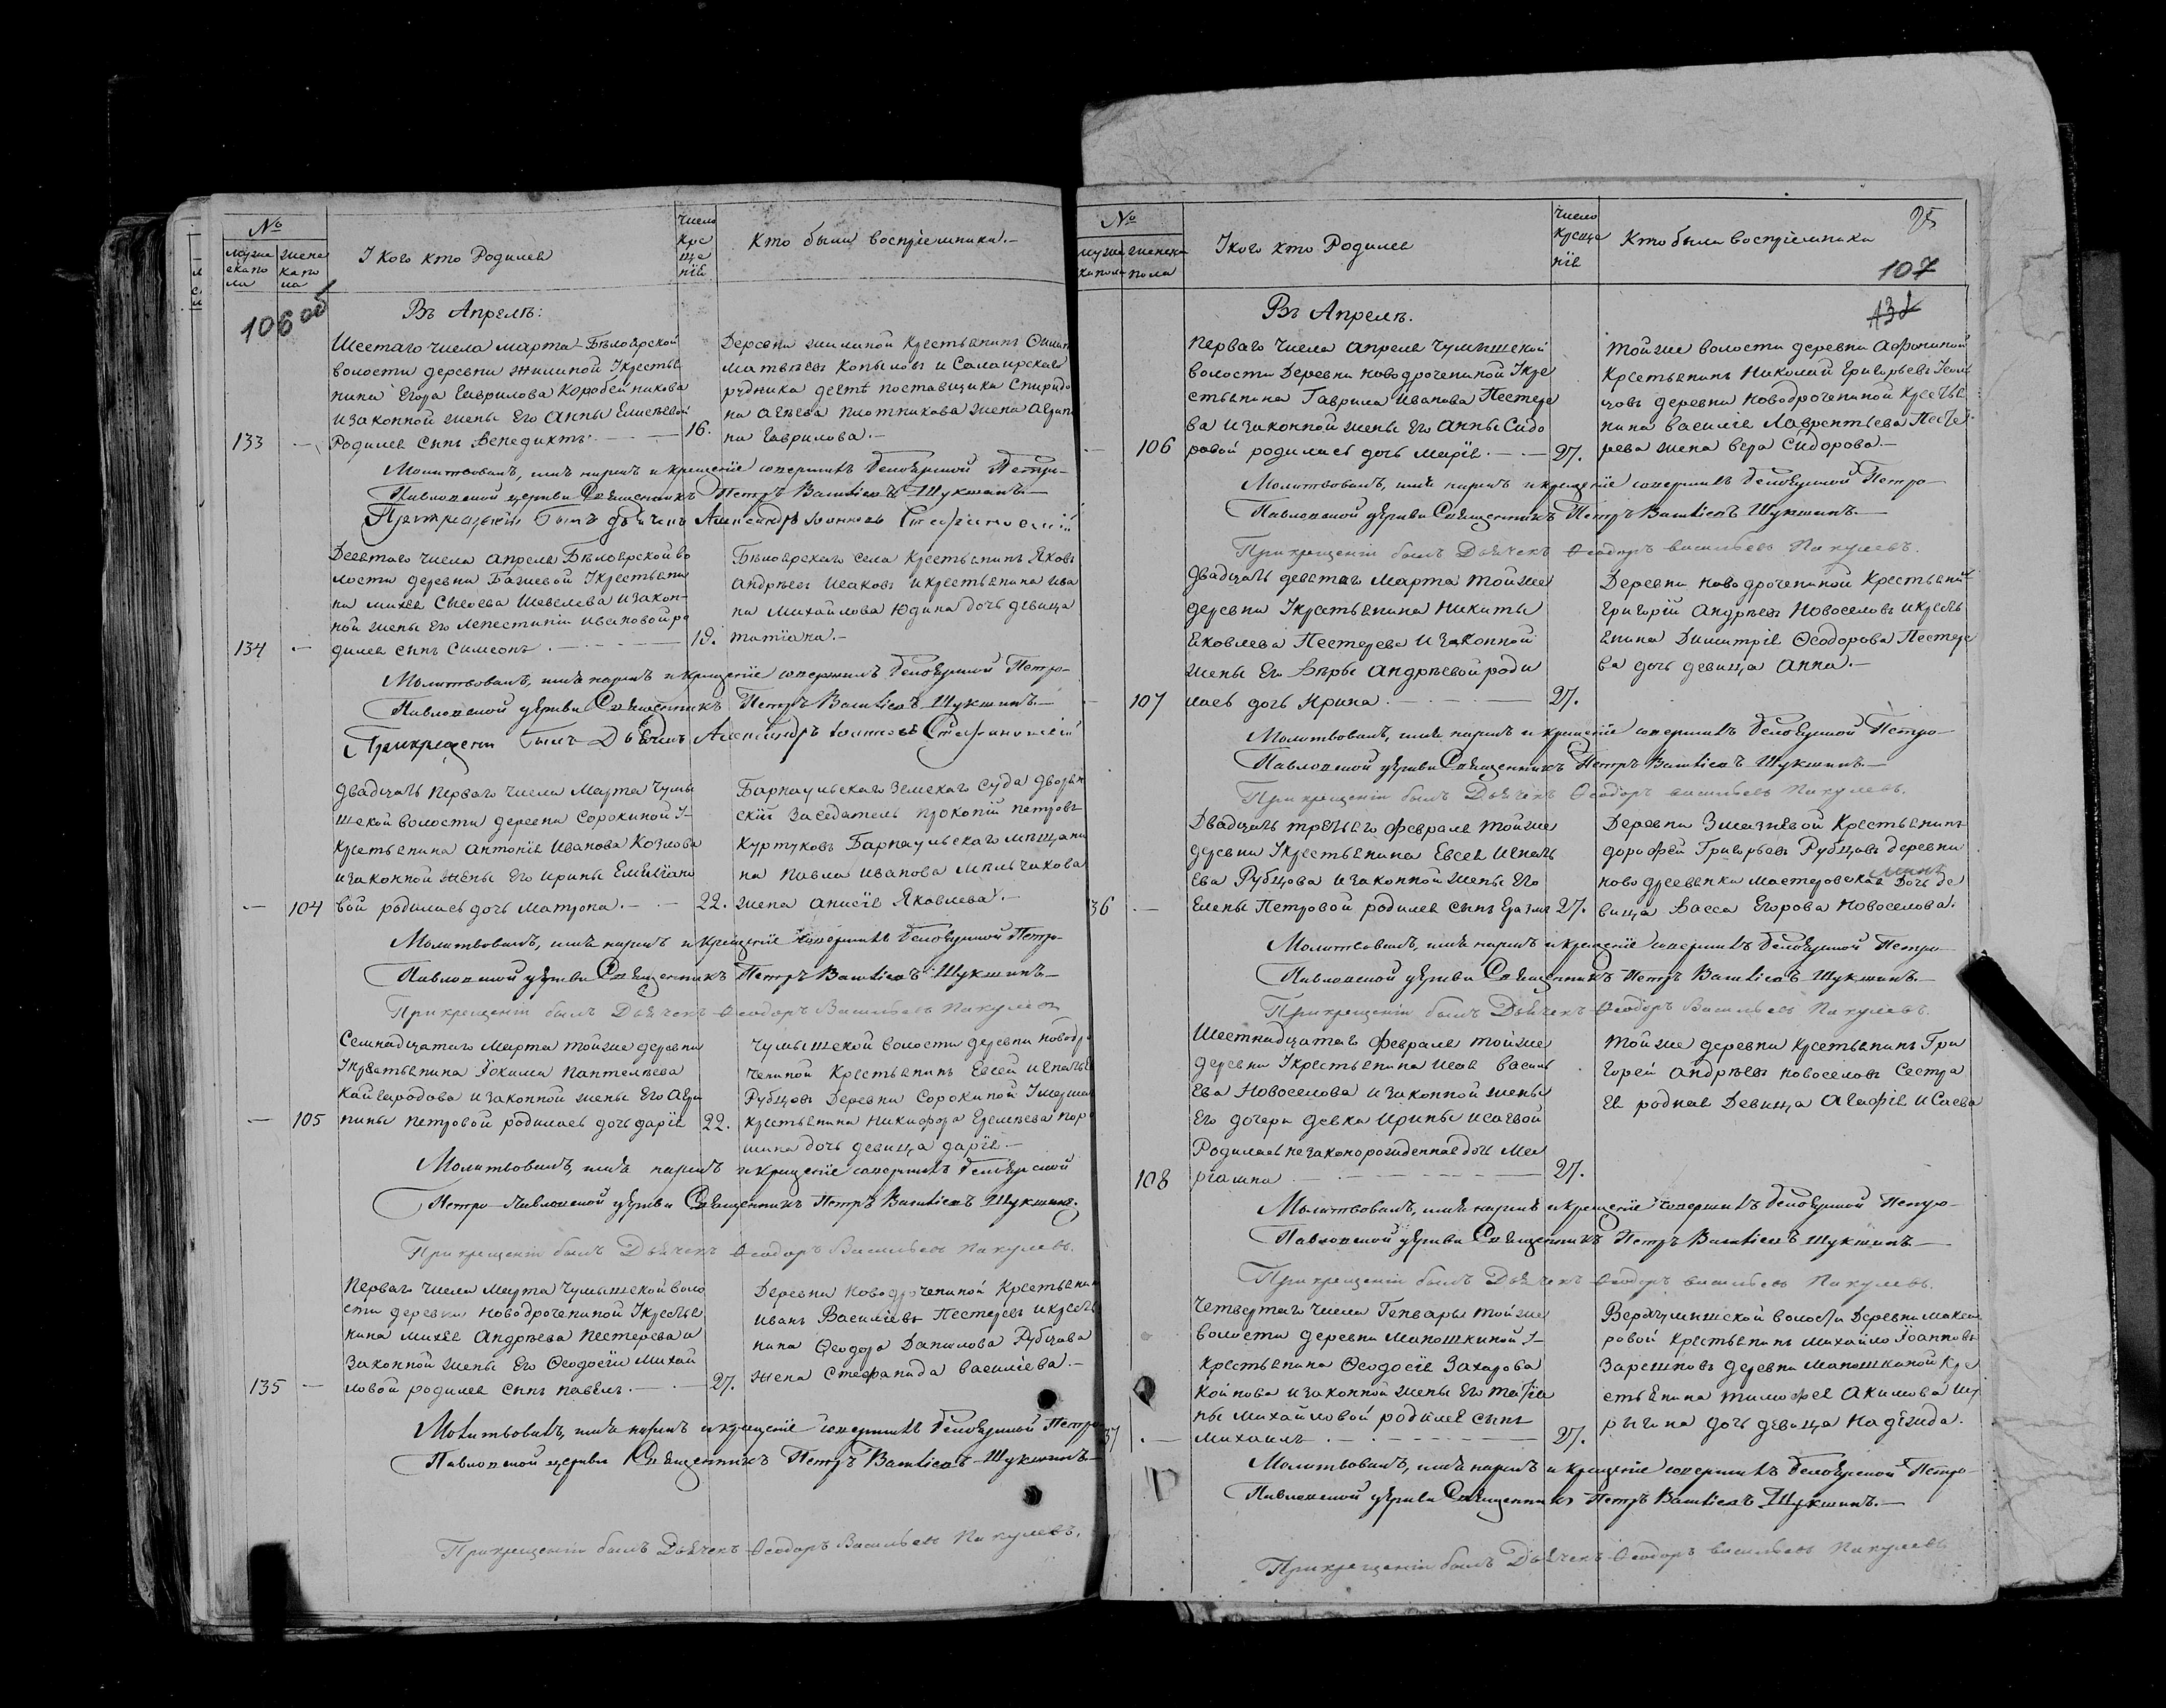 №
мужескаго пола
женскаго пола
У кого кто Родился
Число крещенія
Кто были воспріемники.
106 об
Въ Апрелѣ:
Шестаго числа марта Бѣлоярской
волости деревни Жилиной Укрестья
нина Егора Гаврилова Коробейникова
изаконной жены Его Анны Елисѣевой
133 — Родился сынъ Венедиктъ. — 16.
Деревни жилиной Крестьянинъ
матвѣевъ Копыловъ и Салаирскаго
рудника дегтѣ поставщика Спиридо
на Агѣева плотникова жена Агрипи
на Гаврилова.—
Молитвовалъ, имя нарекъ и крещеніе совершилъ белоярской Петро-
Павловской церкви Священникъ Петръ Васильевъ Шукшинъ.—
При крещеніи былъ дьячекъ Александръ Иоанновъ Стефановскій
Девятаго числа апреля Бѣлоярской во
лости деревни Бажевой Укрестьяни
на михея Сысоева Шевелева изакон-
ной жены его Лепестиніи ивановой ро
134 — дился сынъ Симеонъ. — 19.
Бѣлоярскаго села Крестьянинъ Яковъ
Андрѣевъ Исаковъ икрестьянина Ива
на Михайлова Юдина дочь девица
татіана.—
Молитвовалъ, имя нарекъ и крещеніе совершилъ белоярской Петро-
Павловской церкви Священникъ Петръ Васильевъ Шукшинъ.—
При крещеніи былъ Дьячекъ Александръ Иоанновъ Стефановскій
Двадцать перваго числа Марта Чумы
шской волости деревни Сорокиной У-
Крестьянина Антонія Иванова Козлова
изаконной жены его ирины Емильяно
— 104 вой родилась дочь матрона. — 22.
Барнаульскаго Земскаго Суда дворян
скій Заседатель прокопій петровъ
Куртуковъ Барнаульскаго мѣщани
на павла иванова мѣльчакова
жена анисія Яковлева.—
Молитвовалъ, имя нарекъ и крещеніе совершилъ белоярской Петро-
Павловской церкви Священникъ Петръ Васильевъ Шукшинъ.—
При крещеніи былъ Дьячекъ Ѳеодоръ Васильевъ Пакулевъ
Семнадцатаго марта тойже деревни
Укрестьянина Іокима Пантелѣева
Кайгородова изаконной жены Его Агри
— 105 пины петровой родилась дочь дарія 22.
Чумышской волости деревни новодро
чениной Крестьянинъ Евсей игнатьев
Рубцовъ Деревни Сорокиной Умерша
крестьянина Никифора Еремѣева пор
шина дочь девица дарія.—
Молитвовалъ, имя нарекъ и крещеніе совершилъ белоярской
Петро-Павловской церкви Священникъ Петръ Васильевъ Шукшинъ.
При крещеніи былъ Дьячекъ Ѳеодоръ Васильевъ Пакулевъ.
Перваго числа марта Чумышской воло
сти деревни Новодрочениной Укрестья
нина михея Андрѣева Пестерева и
законной жены Его Ѳеодосіи михай
135 — ловой родился сынъ павелъ. — 27.
Деревни новодрочениной Крестьянин
иванъ Василіевъ Пестеревъ икрестья
нина Ѳеодора Данилова Рубцова
жена Стефанида василіева.—
Молитвовалъ, имя нарекъ и крещеніе совершилъ белоярской Петро
Павловской церкви Священникъ Петръ Васильевъ Шукшинъ
При крещеніи былъ Дьячекъ Ѳеодоръ Васильевъ Пакулевъ.
№
мужескаго пола
женскаго пола
У кого кто Родился
Число крещенія
Кто были воспріемники
95
107
131
Въ Апрелѣ.
перваго числа апреля чумышской
волости Деревни новодрочениной Укре
стьянина Гаврила иванова Пестере
ва изаконной жены Его Анны Сидо
— 106 ровой родилась дочь марія. — 27.
тойже волости деревни Афониной
Крестьянинъ Николай Григорьевъ
цовъ деревни новодрочениной Крестья
нина василія Лаврентьева Песте
рева жена вера Сидорова.—
Молитвовалъ, имя нарекъ и крещеніе совершилъ белоярской Петро-
Павловской церкви Священникъ Петръ Васильевъ Шукшинъ.—
При крещеніи былъ Дьячекъ Ѳеодоръ васильевъ Пакулевъ.
двадцать девятаго марта тойже
деревни Укрестьянина Никиты
Яковлева Пестерева изаконной
жены Его Вѣры Андрѣевой роди
— 107 лась дочь Ирина. — 27.
Деревни новодрочениной Крестьянин
Григорій Андрѣевъ Новоселовъ икресть
янина Димитрія Ѳеодорова Пестере
ва дочь девица Анна.—
Молитвовалъ, имя нарекъ и крещеніе совершилъ белоярской Петро-
Павловской церкви Священникъ Петръ Васильевъ Шукшинъ.—
При крещеніи былъ Дьячекъ Ѳеодоръ васильевъ Пакулевъ.
Двадцать третьяго февраля тойже
деревни Укрестьянина Евсея игнать
ева Рубцова изаконной жены Его
36 — Елены Петровой родился сынъ Еразмъ 27.
Деревни Змазневой Крестьянинъ
дорофей Григорьевъ Рубцовъ деревни
новодресвянки мастеровская дочь де
вица Васса Егорова Новоселова.
Молитвовалъ, имя нарекъ и крещеніе совершилъ белоярской Петро-
Павловской церкви Священникъ Петръ Васильевъ Шукшинъ.—
При крещеніи былъ Дьячекъ Ѳеодоръ Васильевъ Пакулевъ.
Шестнадцатаго февраля тойже
деревни Укрестьянина исая василь
ева Новоселова изаконной жены
Его дочери девки ирины исаевой
Родилась незаконорожденная дочь Ма
— 108 ріамна — 27.
Тойже деревни крестьянинъ Гри
горей Андрѣевъ новоселовъ Сестра
Ея родная Девица Агафія исаева
Молитвовалъ, имя нарекъ и крещеніе совершилъ белоярской Петро-
Павловской церкви Священникъ Петръ Васильевъ Шукшинъ.—
При крещеніи былъ Дьячекъ Ѳеодоръ васильевъ Пакулевъ.
Четвертаго числа Генваря тойже
волости деревни Маношкиной У-
крестьянина Ѳеодосія Захарова
Койнова изаконной жены Его татіа
ны михайловой родился сынъ
37 — михаилъ — 27.
Верхчумышской волости Деревни мака
ровой крестьянинъ михайло Іоанновъ
Зарешновъ деревни маношкиной кре
стьянина тимофея Акимова
рыгина дочь девица надежда.
Молитвовалъ, имя нарекъ и крещеніе совершилъ белоярской Петро-
Павловской церкви Священникъ Петръ Васильевъ Шукшинъ.—
При крещеніи былъ Дьячекъ Ѳеодоръ васильевъ Пакулевъ